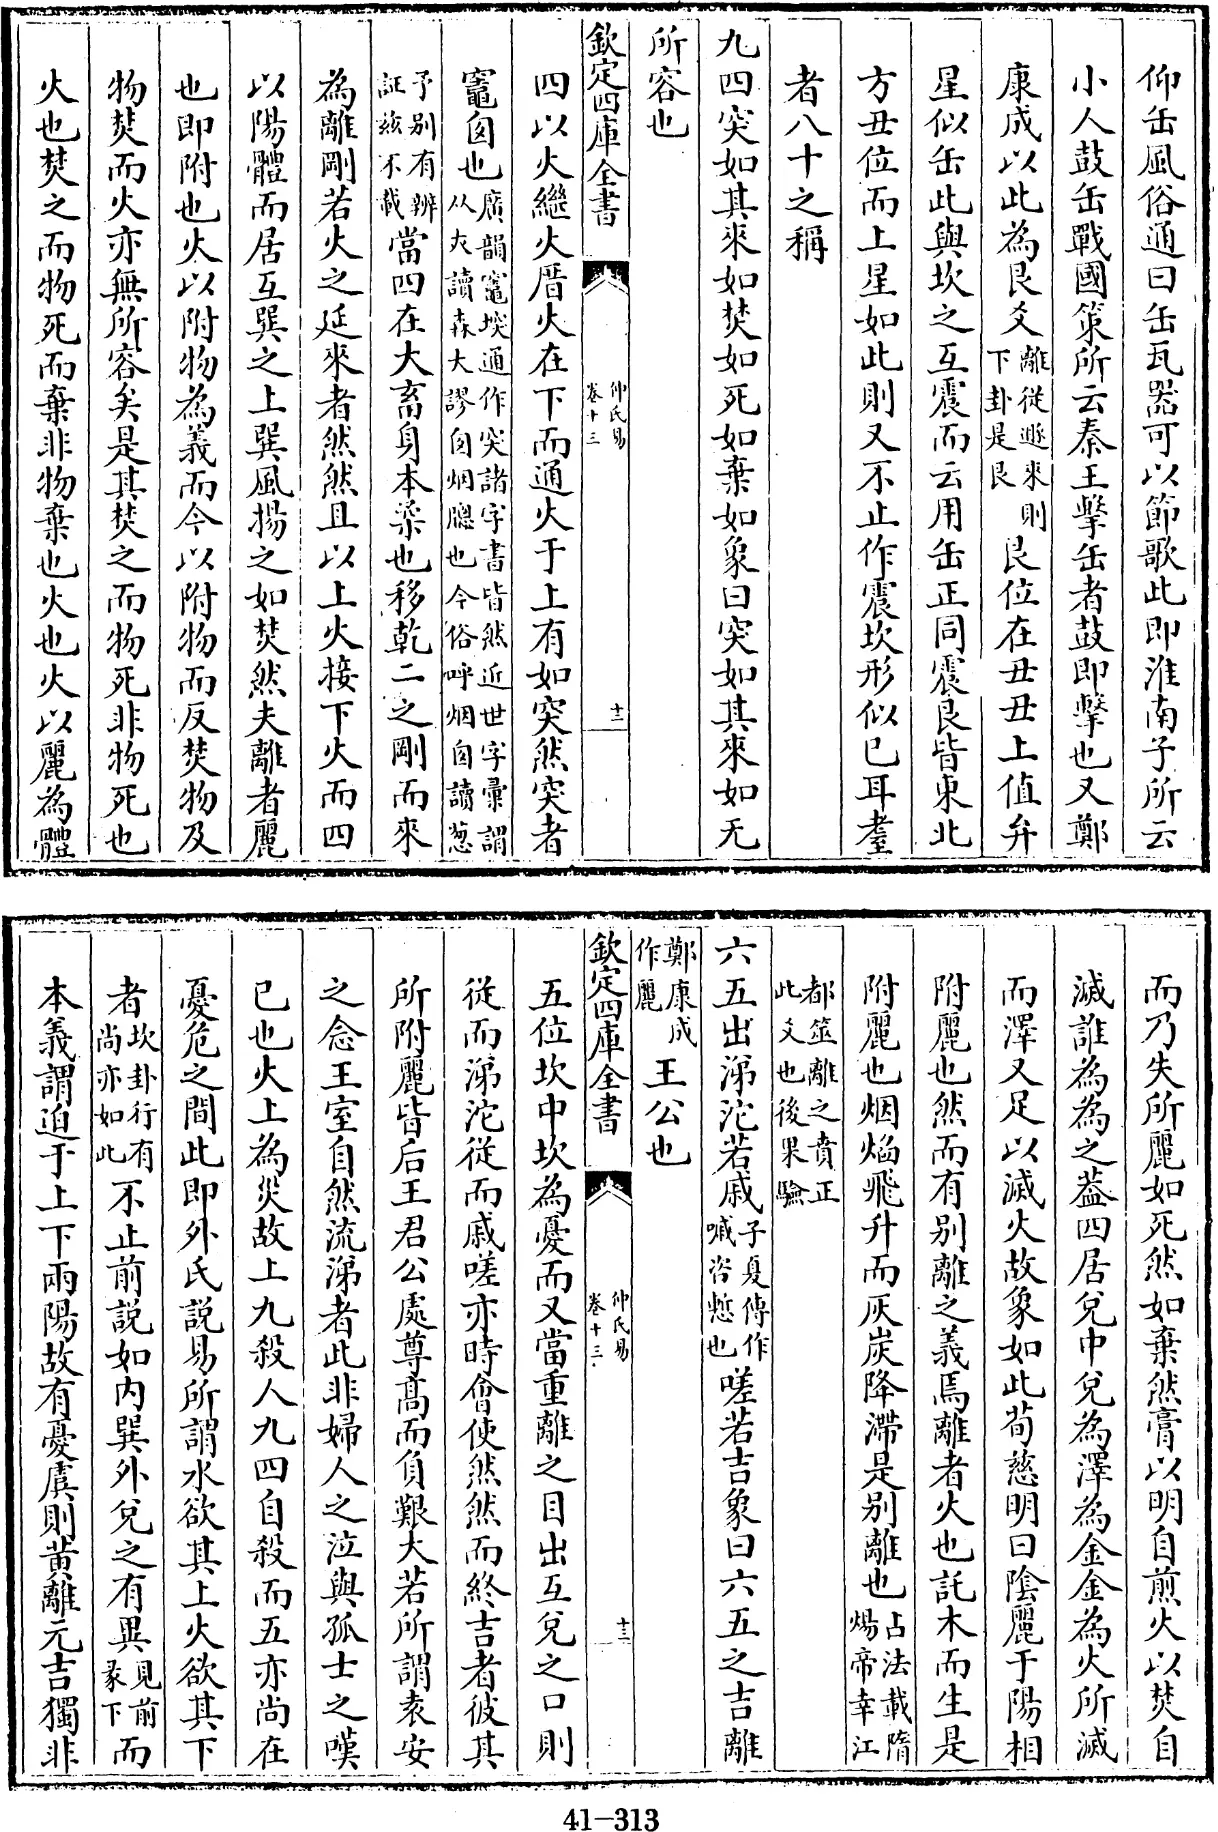 仰缶風俗通曰缶瓦器可以節歌此即淮南子所云
小人鼓缶戰國策所云秦王擊缶者鼓即擊也又鄭
康成以此為艮爻離從遯來則下卦是艮艮位在丑丑上值弁
星似缶此與坎之互震而云用缶正同震艮皆東北
方丑位而上星如此則又不止作震坎形似已耳耋
者八十之稱
九四突如其來如焚如死如棄如象曰突如其來如无
所容也
欽定四庫全書
仲氏易
卷十三
十二
四以火繼火厝火在下而通火于上有如突然突者
竈囪也廣韻竈堗通作突諸字書皆然近世字彚謂从犬讀森大謬囪烟牕也今俗呼烟囪讀葱
予别有辨証玆不載當四在大畜身本梁也移乾二之剛而來
為離剛若火之延來者然然且以上火接下火而四
以陽體而居互巽之上巽風揚之如焚然夫離者麗
也即附也火以附物為義而今以附物而反焚物及
物焚而火亦無所容矣是其焚之而物死非物死也
火也焚之而物死而棄非物棄也火也火以麗為體
而乃失所麗如死然如棄然膏以明自煎火以焚自
滅誰為為之葢四居兌中兌為澤為金金為火所滅
而澤又足以滅火故象如此荀慈明曰陰麗于陽相
附麗也然而有别離之義焉離者火也託木而生是
附麗也烟焰飛升而灰炭降滯是别離也占法載隋煬帝幸江
都筮離之賁正此爻也後果驗
六五出涕沱若戚子夏傳作嘁咨慙也嗟若吉象曰六五之吉離
鄭康成作麗王公也
欽定四庫全書
仲氏易
卷十三
十三
五位坎中坎為憂而又當重離之目出互兌之口則
從而涕沱從而戚嗟亦時會使然然而終吉者彼其
所附麗皆后王君公處尊高而負艱大若所謂袁安
之念王室自然流涕者此非婦人之泣與孤士之嘆
已也火上為災故上九殺人九四自殺而五亦尚在
憂危之間此即外氏説易所謂水欲其上火欲其下
者坎卦行有尚亦如此不止前説如内巽外兌之有異見前彖下而
本義謂迫于上下兩陽故有憂虞則黄離元吉獨非
41-313